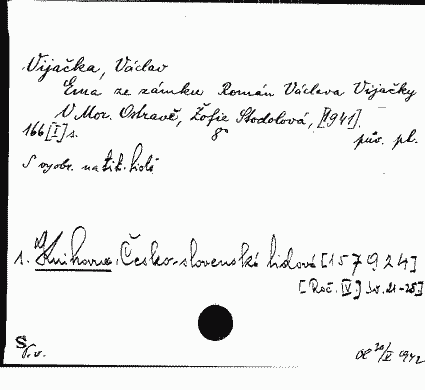 Vijačka, Václav
Ema ze zámku Román Václava Vijačky
V Mor. Ostravě, Žofie Stodolová, [1941].
166 [I] s. 8° pův. pl.
S vyobr. na tit. listě
1. Knihovna Česko-slovenská lidová [157924]
[Roč. IV.] sv. 21-25]
S
20/V 1942